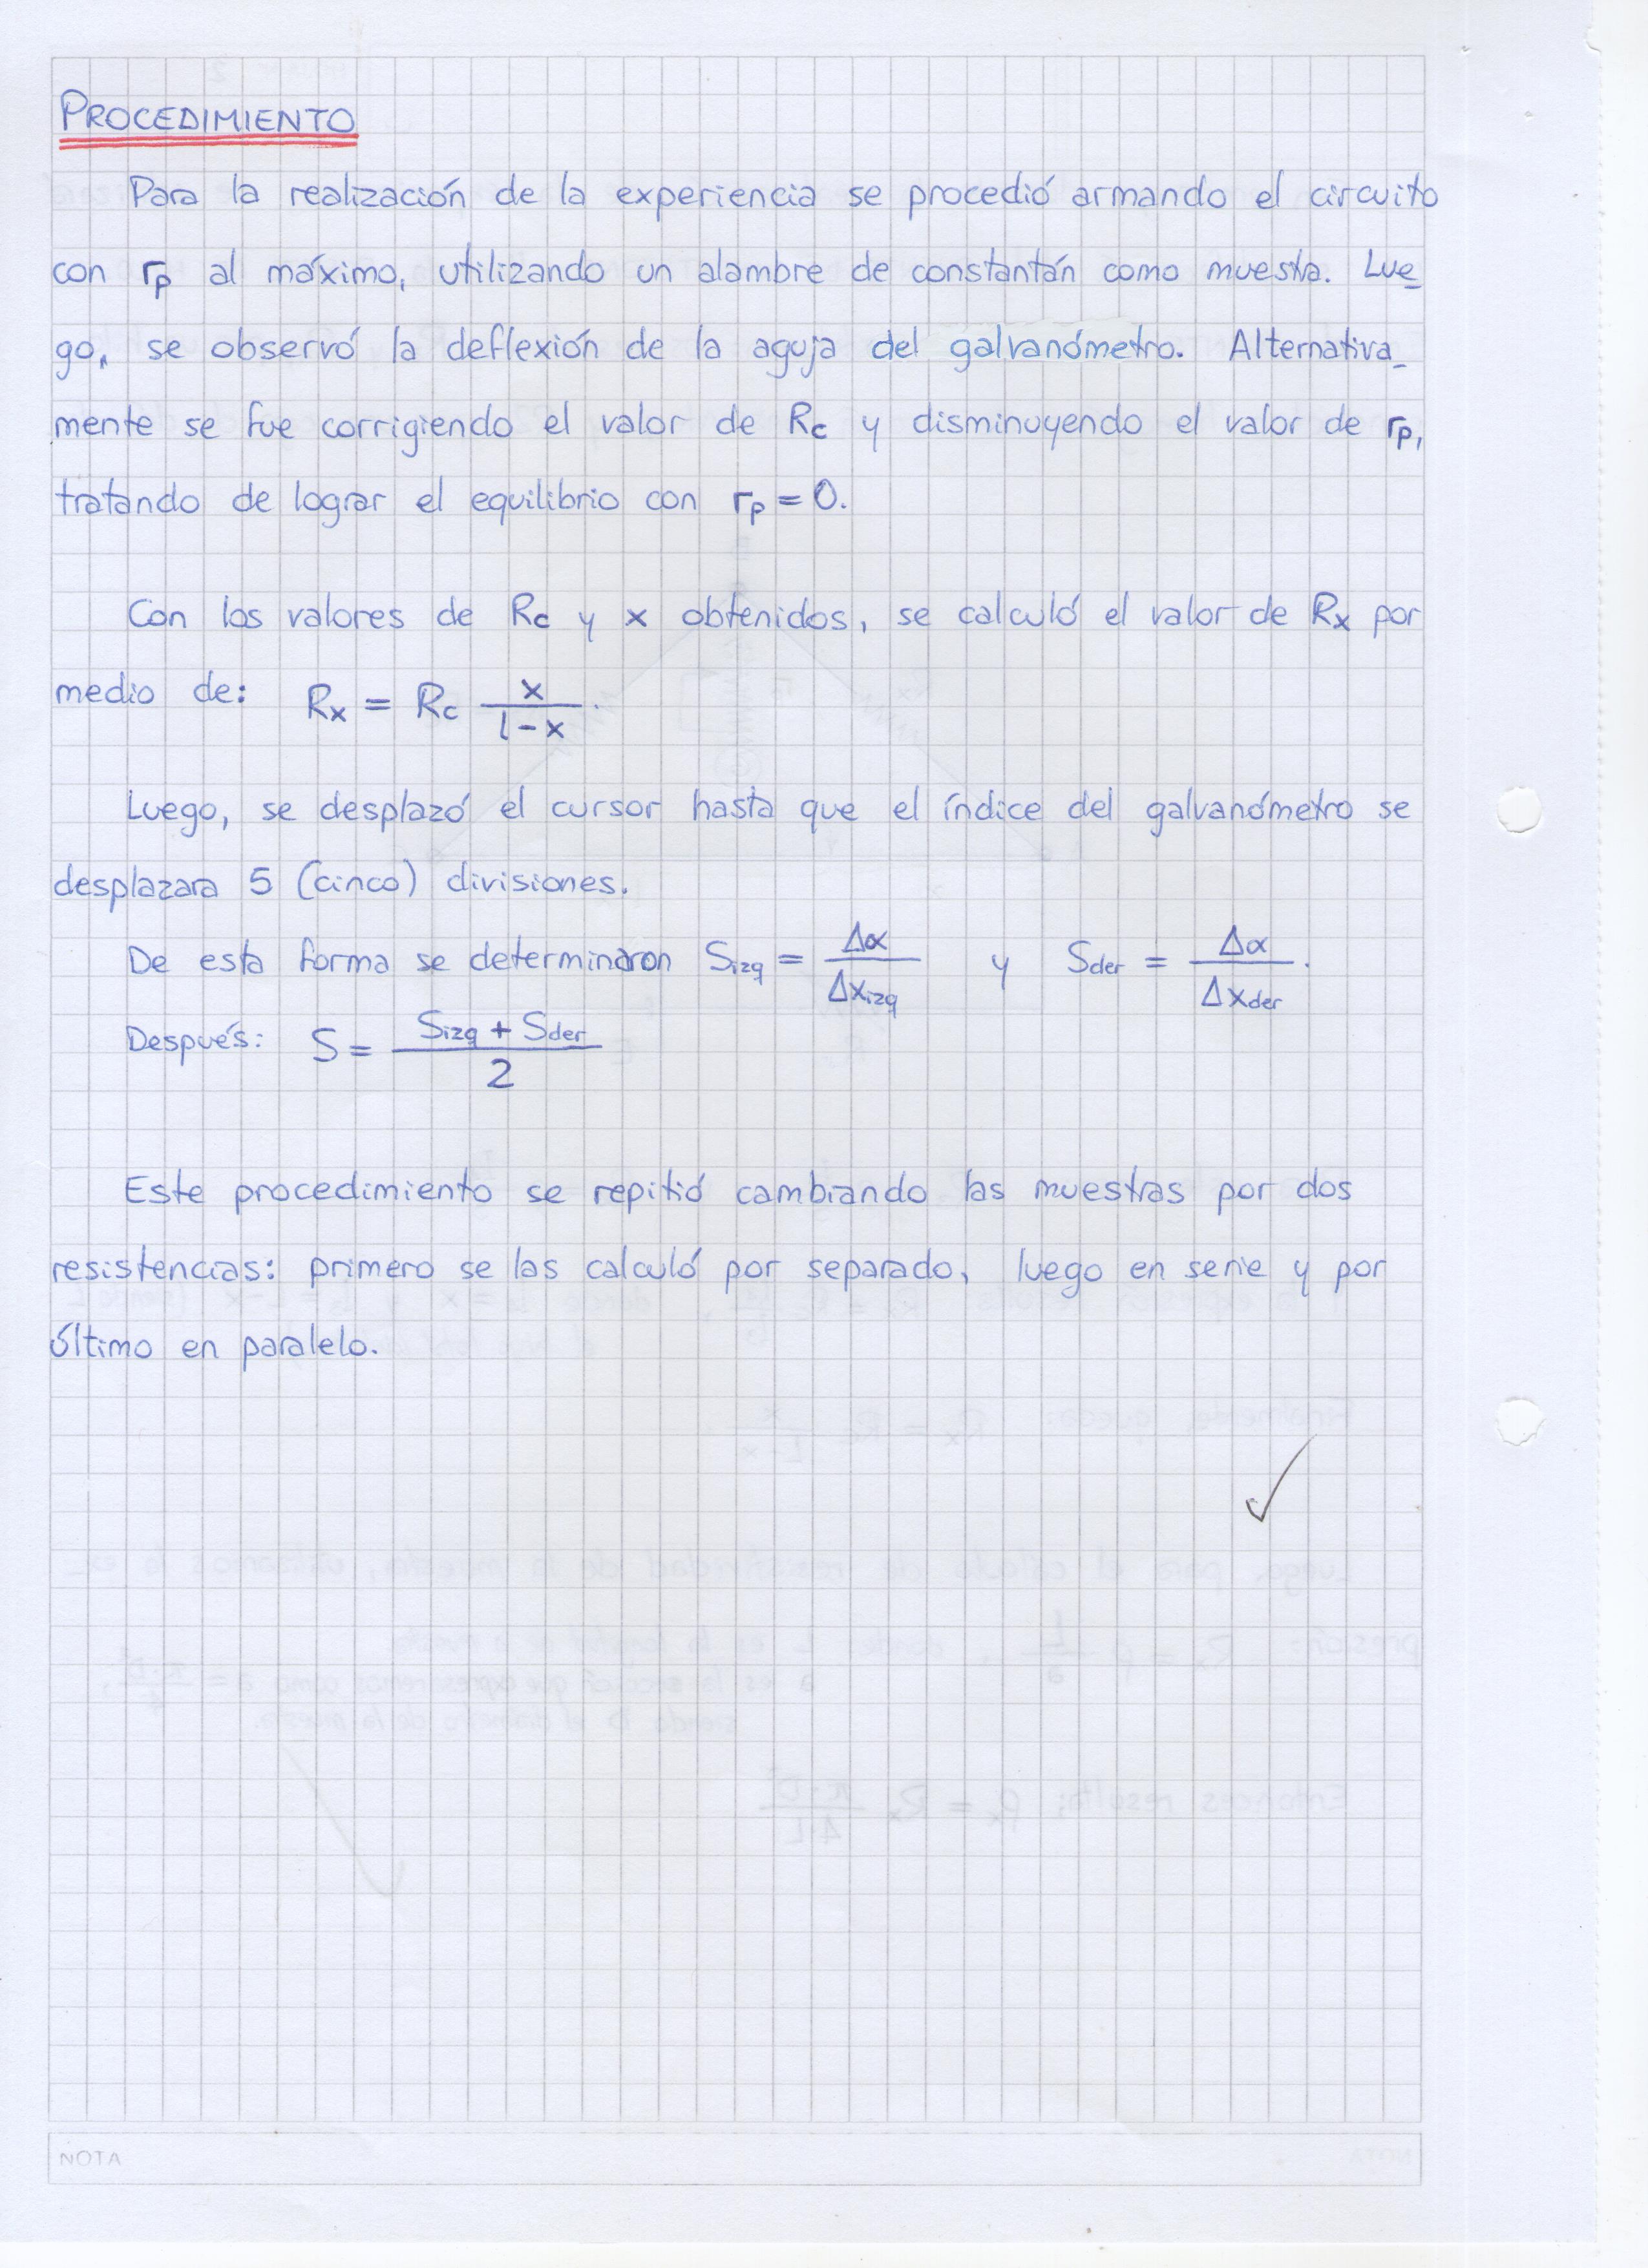 PROCEDIMIENTO
Para la realización de la experiencia se procedió armando el circuito
con rp al máximo, utilizando un alambre de constantán como muestra. Lue-
go, se observó la deflexión de la aguja del galvanómetro. Alternativa-
mente se fue corrigiendo el valor de Rc y disminuyendo el valor de rp,
tratando de lograr el equilibrio con rp = 0.
Con los valores de Rc y x obtenidos, se calculó el valor de Rx por
medio de: Rx = Rc x / (l - x).
Luego, se desplazó el cursor hasta que el índice del galvanómetro se
desplazara 5 (cinco) divisiones.
De esta forma se determinaron Sizq = Δα / Δxizq y Sder = Δα / Δxder.
Después: S = (Sizq + Sder) / 2
Este procedimiento se repitió cambiando las muestras por dos
resistencias: primero se las calculó por separado, luego en serie y por
último en paralelo.
NOTA